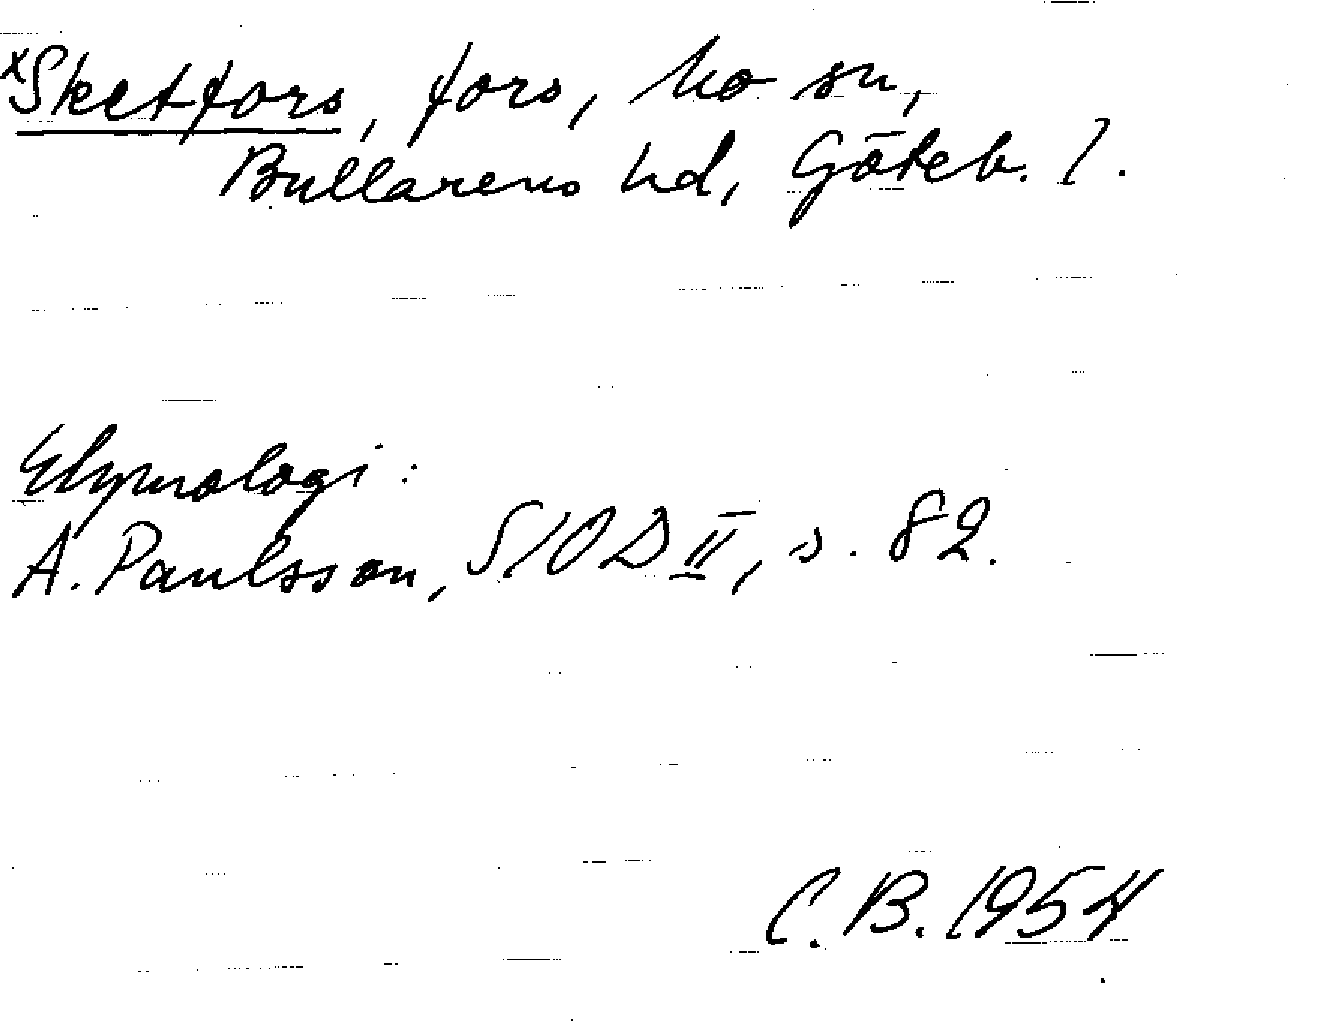 xSkeetfors, fors, Mo sn,
Bullarens hd, Göteb. l.
Etymologi:
A. Paulsson, SIOD II, s. 82.
C. B. 1954